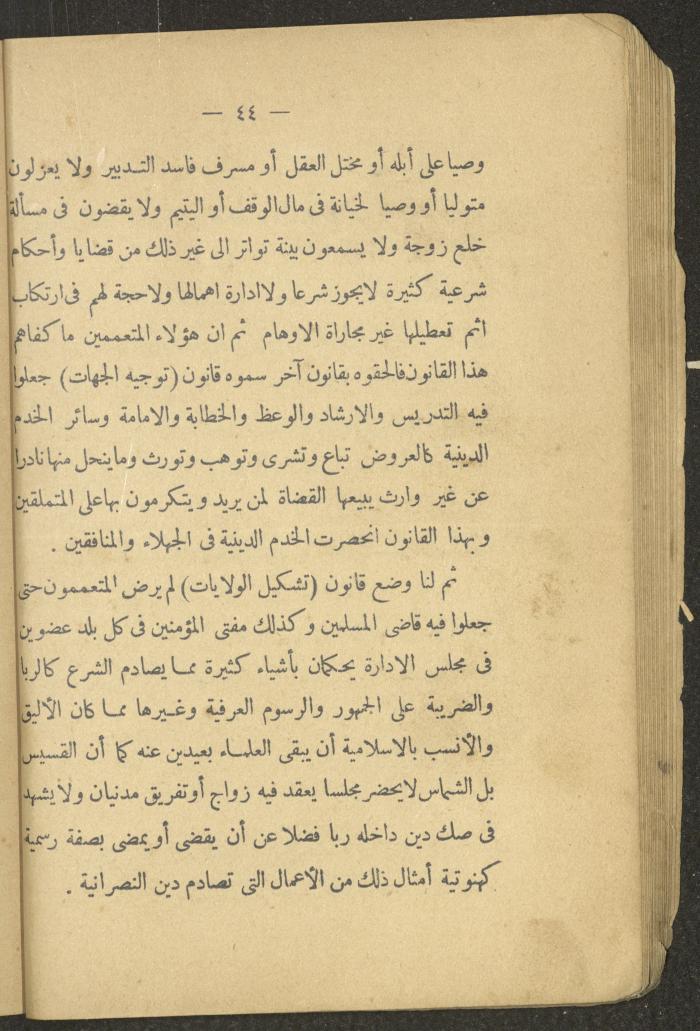 — ٤٤ —
وصيا على أبله أو مختل العقل أو مسرف فاسد التدبير ولا يعزلون
متوليا أو وصيا لخيانة فى مال الوقف أو اليتيم ولا يقضون فى مسألة
خلع زوجة ولا يسمعون بينة تواتر الى غير ذلك من قضايا وأحكام
شرعية كثيرة لايجوز شرعا ولا ادارة اهمالها ولاحجة لهم فى ارتكاب
اثم تعطيلها غير مجاراة الاوهام ثم ان هؤلاء المتعممين ما كفاهم
هذا القانون فالحقوه بقانون آخر سموه قانون (توجيه الجهات) جعلوا
فيه التدريس والارشاد والوعظ والخطابة والامامة وسائر الخدم
الدينية كالعروض تباع وتشرى وتوهب وتورث وما ينحل منها نادرا
عن غير وارث يبيعها القضاة لمن يريد ويتكرمون بها على المتملقين
وبهذا القانون انحصرت الخدم الدينية فى الجهلاء والمنافقين .
ثم لنا وضع قانون (تشكيل الولايات) لم يرض المتعممون حتى
جعلوا فيه قاضى المسلمين وكذلك مفتى المؤمنين فى كل بلد عضوين
فى مجلس الادارة يحكمان بأشياء كثيرة مما يصادم الشرع كالربا
والضريبة على الخمور والرسوم العرفية وغيرها مما كان الأليق
والأنسب بالاسلامية أن يبقى العلماء بعيدين عنه كما أن القسيس
بل الشماس لايحضر مجلسا يعقد فيه زواج أو تفريق مدنيان ولا يشهد
فى صك دين داخله ربا فضلا عن أن يقضى أو يمضى بصفة رسمية
كهنوتية أمثال ذلك من الأعمال التى تصادم دين النصرانية .